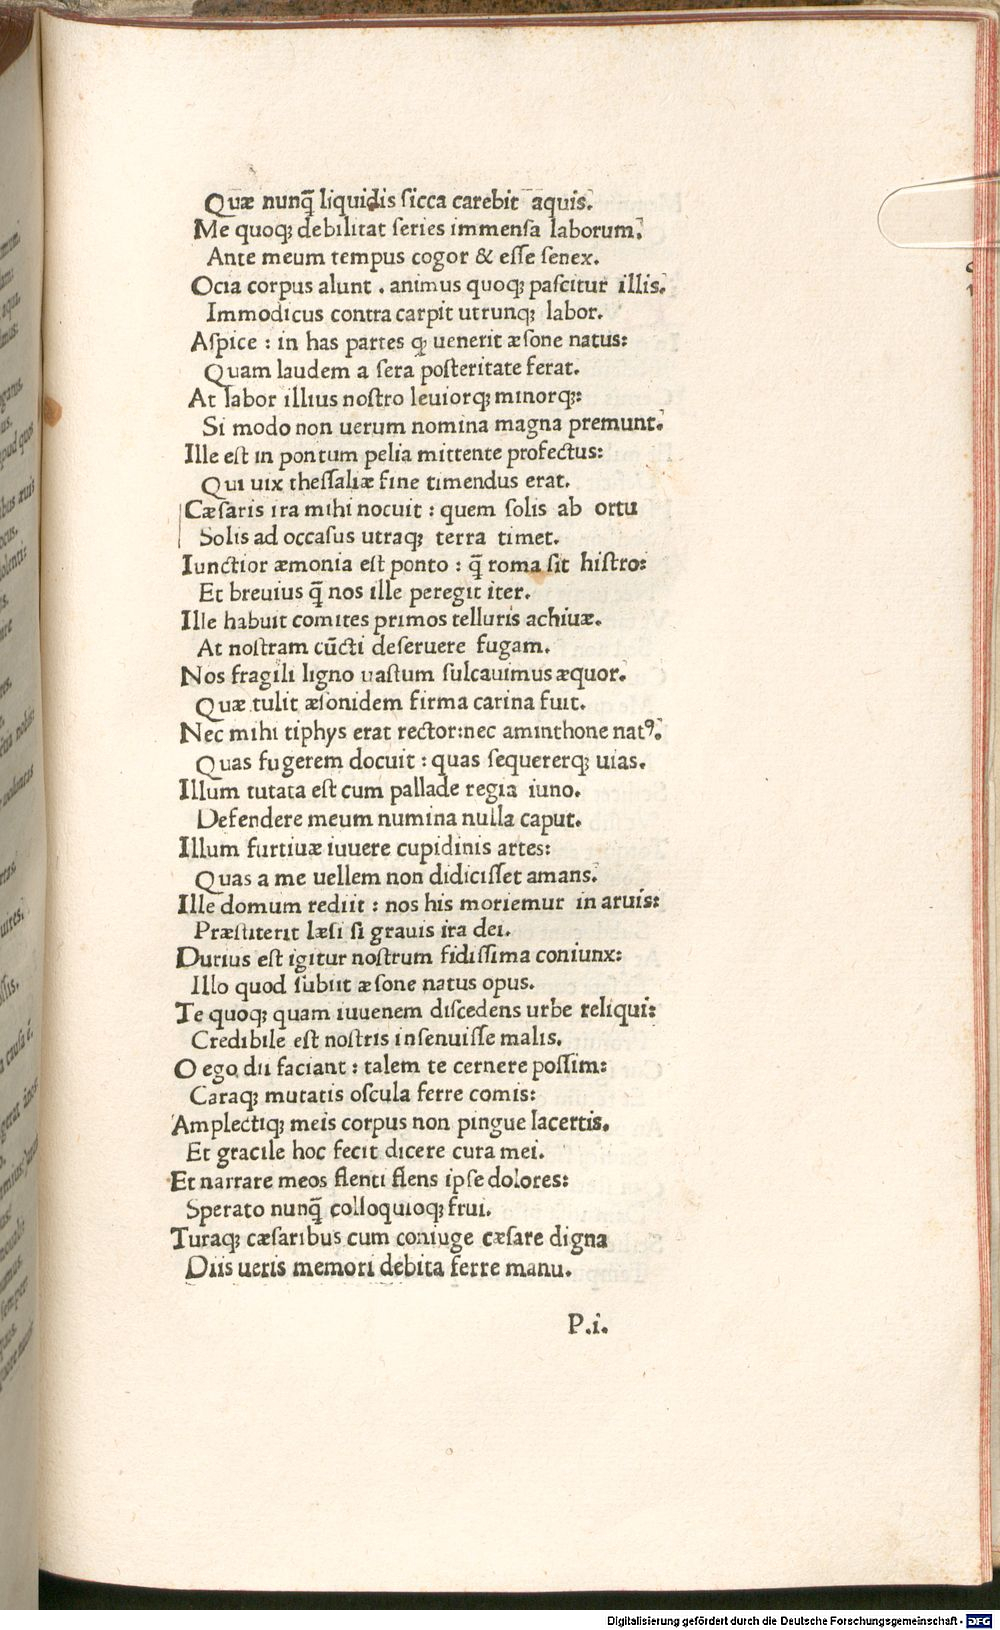 Quæ nunq̃ liquidis ſicca carebit aquis.
Me quoq; debilitat ſeries immenſa laborum.
Ante meum tempus cogor & eſſe ſenex.
Ocia corpus alunt . animus quoq; paſcitur illis.
Immodicus contra carpit utrunq; labor.
Aſpice : in has partes ꝙ uenerit æſone natus:
Quam laudem a ſera poſteritate ferat.
At labor illius noſtro leuiorq; minorq;:
Si modo non uerum nomina magna premunt.
Ille eſt in pontum pelia mittente profectus:
Qui uix theſſaliæ fine timendus erat.
Cæſaris ira mihi nocuit : quem ſolis ab ortu
Solis ad occaſus utraq; terra timet.
Iunctior æmonia eſt ponto : q̃ roma ſit hiſtro:
Et breuius q̃ nos ille peregit iter.
Ille habuit comites primos telluris achiuæ.
At noſtram cũcti deſeruere fugam.
Nos fragili ligno uaſtum ſulcauimus æquor.
Quæ tulit æſonidem firma carina fuit.
Nec mihi tiphys erat rector:nec aminthone natꝰ.
Quas fugerem docuit : quas ſequererq; uias.
Illum tutata eſt cum pallade regia iuno.
Defendere meum numina nulla caput.
Illum furtiuæ iuuere cupidinis artes:
Quas a me uellem non didiciſſet amans.
Ille domum rediit : nos his moriemur in aruis:
Præſtiterit læſi ſi grauis ira dei.
Durius eſt igitur noſtrum fidiſſima coniunx:
Illo quod ſubiit æſone natus opus.
Te quoq; quam iuuenem diſcedens urbe reliqui:
Credibile eſt noſtris inſenuiſſe malis.
O ego dii faciant : talem te cernere poſſim:
Caraq; mutatis oſcula ferre comis:
Amplectiq; meis corpus non pingue lacertis.
Et gracile hoc fecit dicere cura mei.
Et narrare meos flenti flens ipſe dolores:
Sperato nunq̃ colloquioq; frui.
Turaq; cæſaribus cum coniuge cæſare digna
Diis ueris memori debita ferre manu.
P.i.
Digitalisierung gefördert durch die Deutsche Forschungsgemeinschaft - DFG